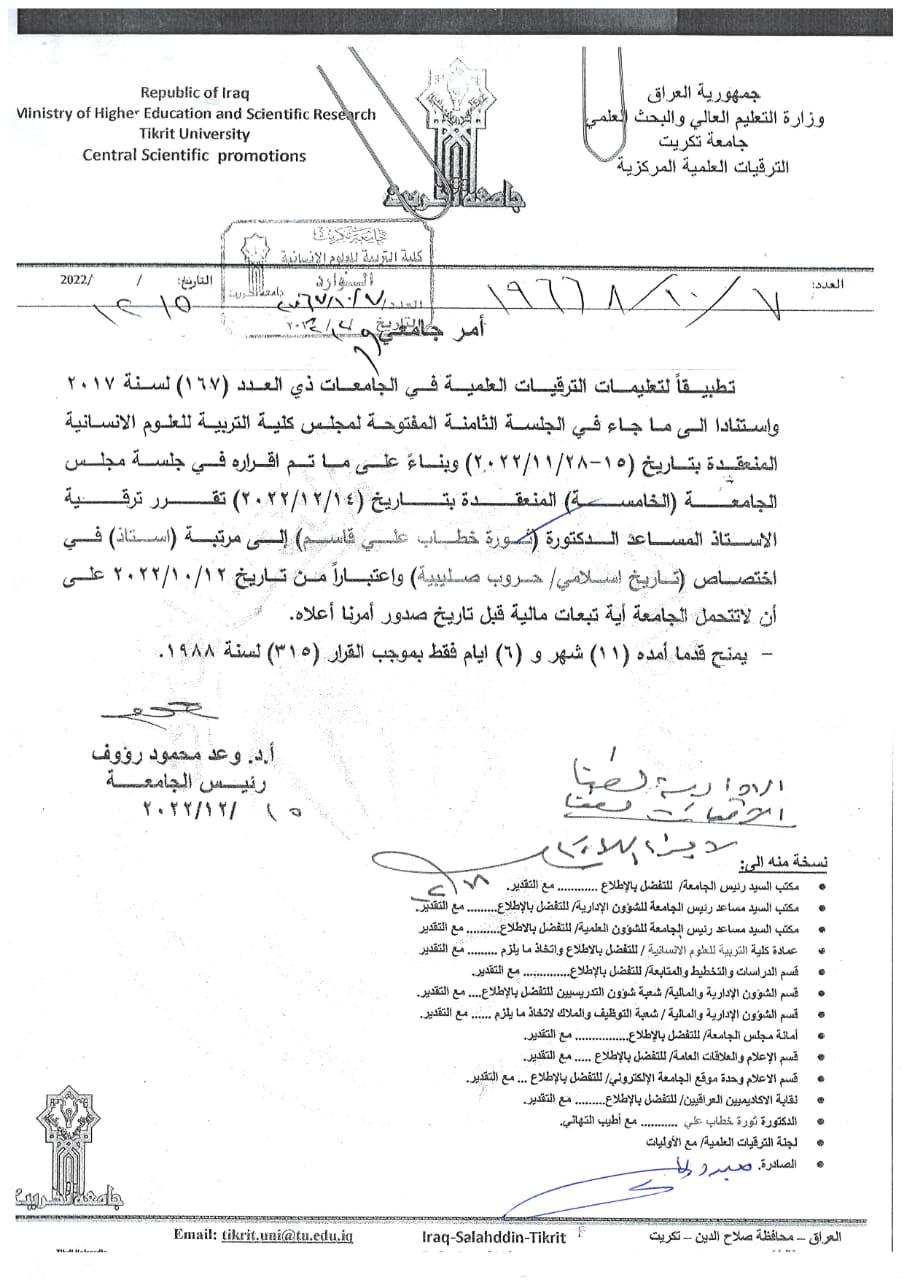 Republic of Iraq
Ministry of Higher Education and Scientific Research
Tikrit University
Central Scientific promotions
جمهورية العراق
وزارة التعليم العالي والبحث العلمي
جامعة تكريت
الترقيات العلمية المركزية
جامعة تكريت
كلية التربية للعلوم الانسانية
العدد: ١٩٦٦٨/١٠/٧
التاريخ: / /2022
١٢ ١٥
أمر جامعي
تطبيقاً لتعليمات الترقيات العلمية في الجامعات ذي العدد (١٦٧) لسنة ٢٠١٧
واستنادا الى ما جاء في الجلسة الثامنة المفتوحة لمجلس كلية التربية للعلوم الانسانية
المنعقدة بتاريخ (١٥-٢٠٢٢/١١/٢٨) وبناءً على ما تم اقراره في جلسة مجلس
الجامعة (الخامسة) المنعقدة بتاريخ (٢٠٢٢/١٢/١٤) تقرر ترقية
الاستاذ المساعد الدكتورة (ثورة خطاب علي قاسم) إلى مرتبة (استاذ) في
اختصاص (تاريخ اسلامي/ حروب صليبية) واعتباراً من تاريخ ٢٠٢٢/١٠/١٢ على
أن لاتتحمل الجامعة أية تبعات مالية قبل تاريخ صدور أمرنا أعلاه.
- يمنح قدما أمده (١١) شهر و (٦) ايام فقط بموجب القرار (٣١٥) لسنة ١٩٨٨.
أ.د. وعد محمود رؤوف
رئيس الجامعة
١٥ /٢٠٢٢/١٢
نسخة منه الى:
• مكتب السيد رئيس الجامعة/ للتفضل بالإطلاع ............ مع التقدير.
• مكتب السيد مساعد رئيس الجامعة للشؤون الإدارية/ للتفضل بالإطلاع......... مع التقدير.
• مكتب السيد مساعد رئيس الجامعة للشؤون العلمية/ للتفضل بالاطلاع.......... مع التقدير
• عمادة كلية التربية للعلوم الانسانية / للتفضل بالإطلاع واتخاذ ما يلزم ......... مع التقدير
• قسم الدراسات والتخطيط والمتابعة/ للتفضل بالإطلاع............. مع التقدير.
• قسم الشؤون الإدارية والمالية/ شعبة شؤون التدريسيين للتفضل بالإطلاع.... مع التقدير.
• قسم الشؤون الإدارية والمالية / شعبة التوظيف والملاك لاتخاذ ما يلزم ...... مع التقدير.
• أمانة مجلس الجامعة/ للتفضل بالإطلاع................ مع التقدير.
• قسم الإعلام والعلاقات العامة/ للتفضل بالإطلاع ..... مع التقدير.
• قسم الاعلام وحدة موقع الجامعة الإلكتروني/ للتفضل بالإطلاع ... مع التقدير.
• نقابة الاكاديميين العراقيين/ للتفضل بالإطلاع......... مع التقدير.
• الدكتورة ثورة خطاب علي ........... مع أطيب التهاني.
• لجنة الترقيات العلمية/ مع الأوليات
• الصادرة.
جامعة تكريت
Email: tikrit.uni@tu.edu.iq
Iraq-Salahddin-Tikrit
العراق – محافظة صلاح الدين – تكريت